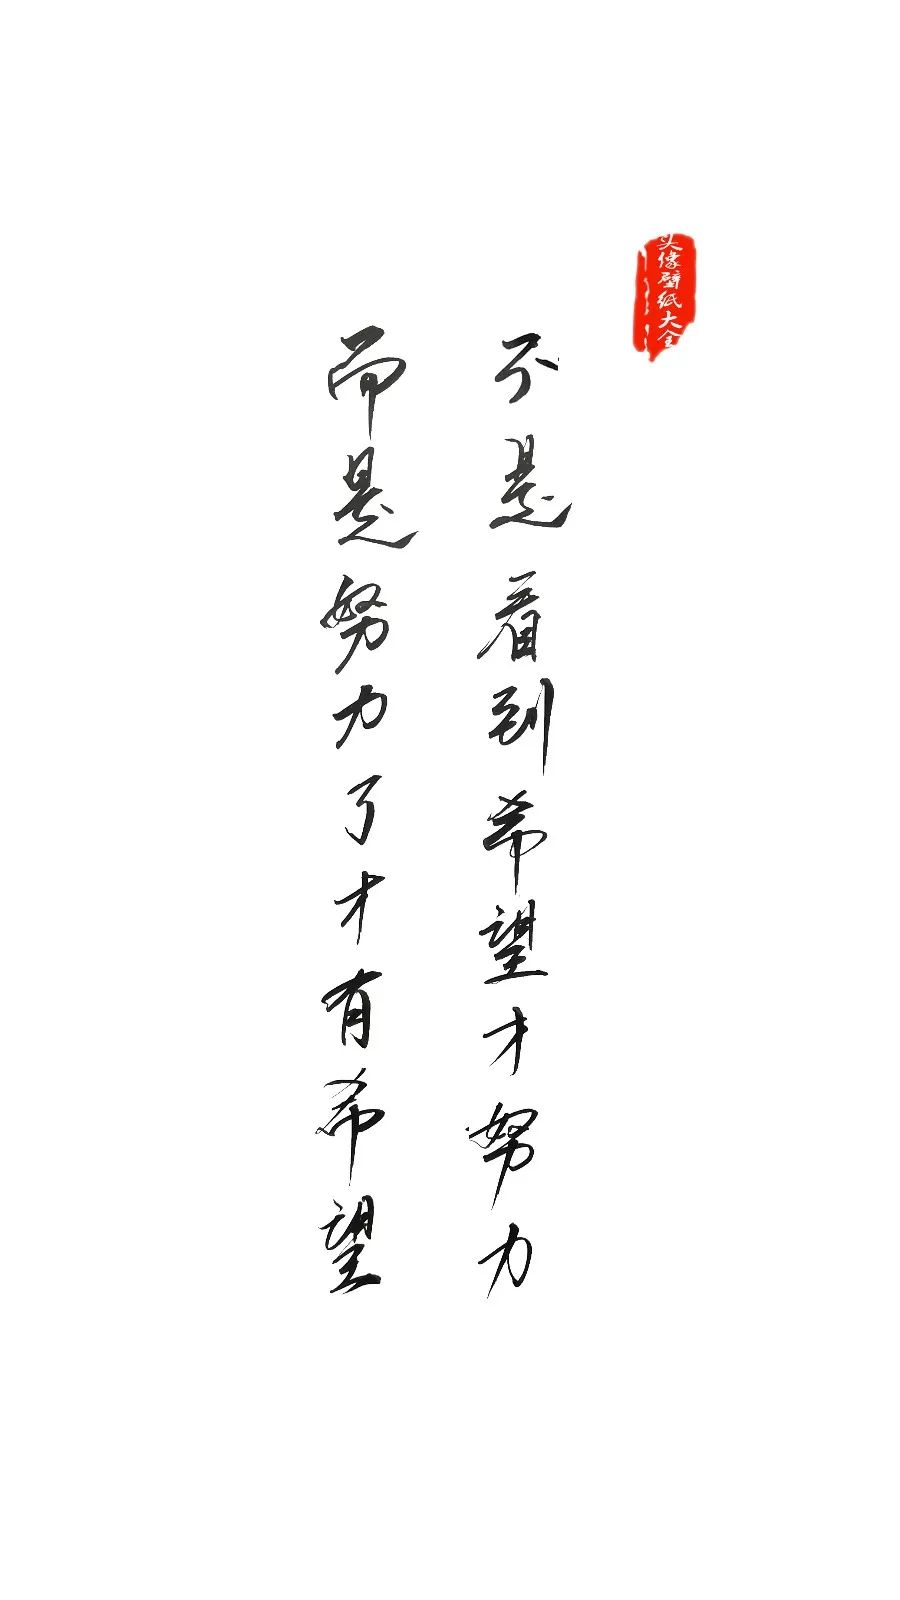 头像壁纸大全
不是看到希望才努力
而是努力了才有希望